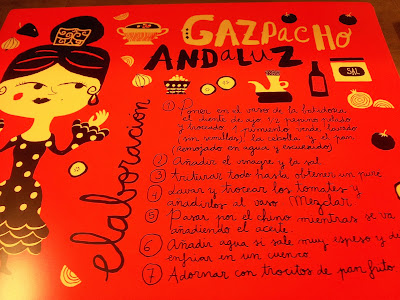 GAZPACHO
ANDALUZ
SAL
elaboración
1) Poner en el vaso de la batidora
el diente de ajo, 1/2 pepino pelado
y troceado, 1 pimiento verde lavado
(sin semillas), la cebolla y el pan
(remojado en agua y escurrido)
2 Añadir el vinagre y la sal.
3 triturar todo hasta obtener un puré
4 Lavar y trocear los tomates y
añadirlos al vaso. Mezclar
5 Pasar por el chino mientras se va
añadiendo el aceite.
6 Añadir agua si sale muy espeso y de
enfriar en un cuenco.
7 Adornar con trocitos de pan frito